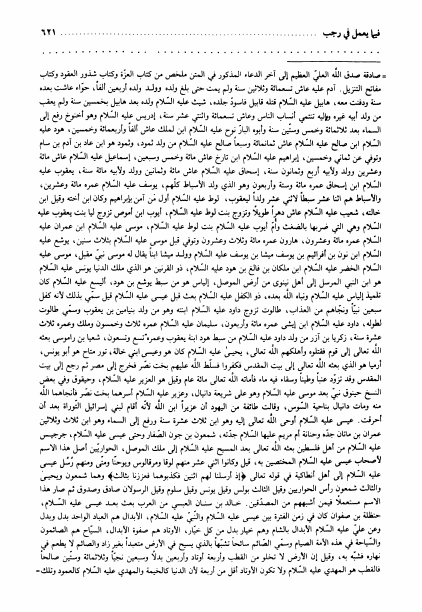 فيما يعمل في رجب ........ ٦٢١
= صادقة صدق الله العليّ العظيم إلى آخر الدعاء المذكور في المتن ملخص من كتاب العزّة وكتاب شذور العقود وكتاب
مفاتح التنزيل. آدم عليه عاش تسعمائة وثلاثين سنة ولم يمت حتى بلغ ولده وولد ولده أربعين ألفاً، حوّاء عاشت بعده
سنة ودفنت معه، هابيل عليه السّلام قتله قابيل فاسودّ جلده، شيث عليه السّلام ولده بعد هابيل بخمسين سنة ولم يعقب
من ولد أبيه غيره وإليه تنتمي أنساب الناس وعاش تسعمائة واثنتي عشر سنة، إدريس عليه السّلام وهو أخنوخ رفع إلى
السماء بعد ثلاثمائة وخمس وستّين سنة وأبوه اليارُ نوح عليه السّلام ابن لمك عاش ألفاً وأربعمائة وخمسين، هود عليه
السّلام ابن صالح عليه السّلام عاش ثمانمائة وسبعاً صالح عليه السّلام من ولد ثمود، وثمود هو ابن عاد بن آدم بن سام
وتوفي عن ثماني وخمسين، إبراهيم عليه السّلام ابن تارخ عاش مائة وخمس وسبعين، إسماعيل عليه السّلام عاش مائة
وعشرين وولد ولأبيه أربع وثمانون سنة، إسحاق عليه السّلام عاش مائة وثمانين وولد ولأبيه مائة سنة، يعقوب عليه
السّلام ابن إسحاق عمره مائة وسنة وأربعون وهو الذي ولد الأسباط كلّهم، يوسف عليه السّلام عمره مائة وعشرين،
والأسباط هم اثنا عشر سبطاً لاثني عشر ولداً ليعقوب، لوط عليه السّلام أول من آمن بإبراهيم وكان ابن أخته وقيل ابن
خالته، شعيب عليه السّلام عاش دهراً طويلاً وتزوج بنت لوط عليه السّلام، أيوب ابن أموص تزوج ليا بنت يعقوب عليه
السّلام وهي التي ضربها بالضغث وأُمّ أيوب عليه السّلام بنت لوط عليه السّلام، موسى عليه السّلام ابن عمران عليه
السّلام عمره مائة وعشرون، هارون عمره مائة وثلاث وعشرون وتوفي قبل موسى عليه السّلام بثلاث سنين، يوشع عليه
السّلام ابن نون بن أفرائيم بن يوسف عليه السّلام وولد ميشا ابناً يقال له موسى نبيّ مقبل، موسى عليه
السّلام الخضر عليه السّلام ابن ملكان بن فالغ بن هود عليه السّلام، ذو القرنين هو الذي ملك الدنيا يونس عليه السّلام
هو ابن النبي المرسل إلى أهل نينوى من أرض الموصل، إلياس هو من سبط يوشع بن هود، أليسع عليه السّلام كان
تلميذ إلياس عليه السّلام ونباه الله بعده، ذو الكفل عليه السّلام بعث قبل عيسى عليه السّلام قيل سمّي بذلك لأنه كفل
سبعين نبيّاً ونجّاهم من العذاب، طالوت تزوج داود عليه السّلام ابنته وهو من ولد بنيامين بن يعقوب وسمّي طالوت
لطوله، داود عليه السّلام ابن إيشى عمره مائة وأربعون، سليمان عليه السّلام عمره ثلاث وخمسون وملك وعمره ثلاث
عشرة سنة، زكريا بن آزر من ولد داود عليه السّلام من سبط هود ابنة يعقوب وعمره تسع وتسعون، شعيا بن راموسى بعثه
الله تعالى إلى قوم فقتلوه وأهلكهم الله تعالى، يحيىٰ عليه السّلام كان هو وعيسى ابني خالة، تور متاح هو أبو يونس،
أرميا هو الذي بعثه الله تعالى إلى بيت المقدس فكفروا فسلّط الله عليهم بخت نصّر فخرج إلى مصر ثم رجع إلى بيت
المقدس وقد تزوّد عنباً وطيناً وسقاء فيه ماء فأماته الله تعالى مائة عام وقيل هو العزير عليه السّلام، وحيقوق وفي بعض
النسخ حيتوق نبيّ بعد موسى عليه السّلام وهو على شريعة دانيال، وعزير عليه السّلام أسرهما بخت نصّر فأنجاهما الله
منه ومات دانيال بناحية السّوس، وقالت طائفة من اليهود أن عزيراً ابن الله لأنه أقام لبني إسرائيل التوراة بعد أن
أحرقت. عيسى عليه السّلام أوحى الله تعالى إليه وهو ابن ثلاث عشرة سنة ورفع إلى السماء وهو ابن ثلاث وثلاثين
عمران بن ماثان جدّه وحنانة أم مريم عليها السّلام جدّته، شمعون بن جون الصّفار وحتى عيسى عليه السّلام، جرجيس
عليه السّلام من أهل فلسطين بعثه الله تعالى بعد المسيح عليه السّلام إلى ملك الموصل، الحواريّين أصل هذا الاسم
لأصحاب عيسى عليه السّلام المختصين به، قيل وكانوا اثني عشر منهم لوقا ومرقالوس ويوحنّا ومتى ومنهم رُسُل عيسى
عليه السّلام إلى أهل أنطاكية في قوله تعالى ﴿إذ أرسلنا لهم اثنين فكذبوهما فعززنا بثالث﴾ وهما شمعون ويحيىٰ
والثالث شمعون رأس الحواريين وقيل الثالث بولس وقيل يونس وقيل سلوم وقيل الرسولان صادق وصدوق ثم صار هذا
الاسم مستعملاً فيمن أشبههم من المصدّقين. خالد بن سنان العبسي من العرب بعث بعد عيسى عليه السّلام،
حنظلة بن صفوان كان في زمن الفترة بين عيسى عليه السّلام والنّبيّ عليه السّلام، الأبدال هم العباد الواحد بدل وبديل
وعن عليّ عليه السّلام الأبدال بالشام وهم خيار بدل من كلّ خيار، الأوتاد هم صفوة الأبدال، السيّاح هم الصائمون
والسياحة في هذه الأمة الصيام وسمّي الصائم سائحاً تشبّهاً بالذي يسيح في الأرض متعبداً بغير زاد والصائم لا يطعم في
نهاره فشبّه به، وقيل إن الأرض لا تخلو من القطب وأربعة أوتاد وأربعين بدلاً وسبعين نجيباً وثلاثمائة وستّين صالحاً
فالقطب هو المهدي عليه السّلام ولا تكون الأوتاد أقل من أربعة لأن الدنيا كالخيمة والمهدي عليه السّلام كالعمود وتلك-